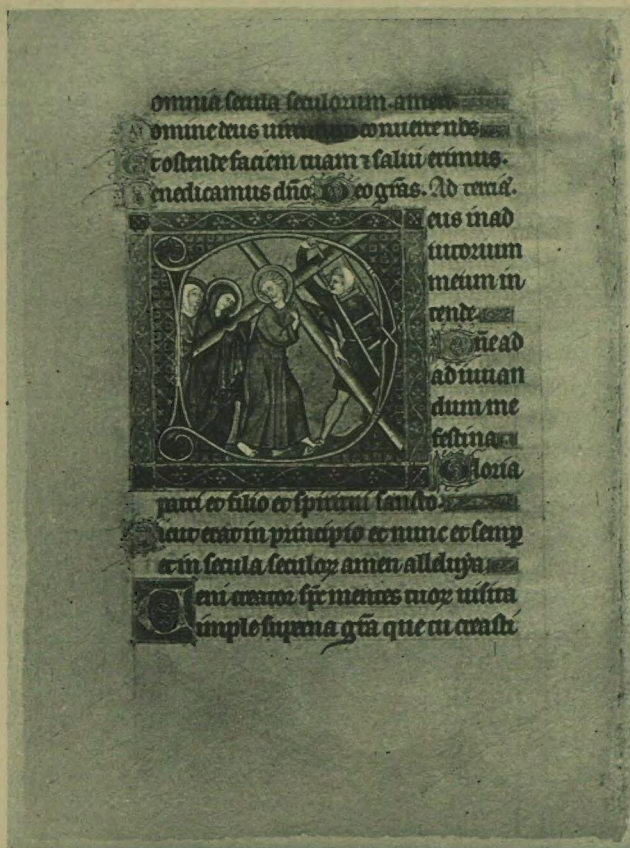 omnia secula seculorum. amen
omine deus uirtutum conuerte nos
t ostende faciem tuam ⁊ salui erimus.
enedicamus dño. Deo gr̃as. Ad terciã.
eus in ad
iutorium
meum in
tende
Dñe ad
adiuuan
dum me
festina
Gloria
patri et filio et spiritui sancto
icut erat in principio et nunc et semp
et in secula seculoꝝ amen alleluya
Veni creator sp̃c mentes tuoꝝ uisita
imple superna gr̃a que tu creasti